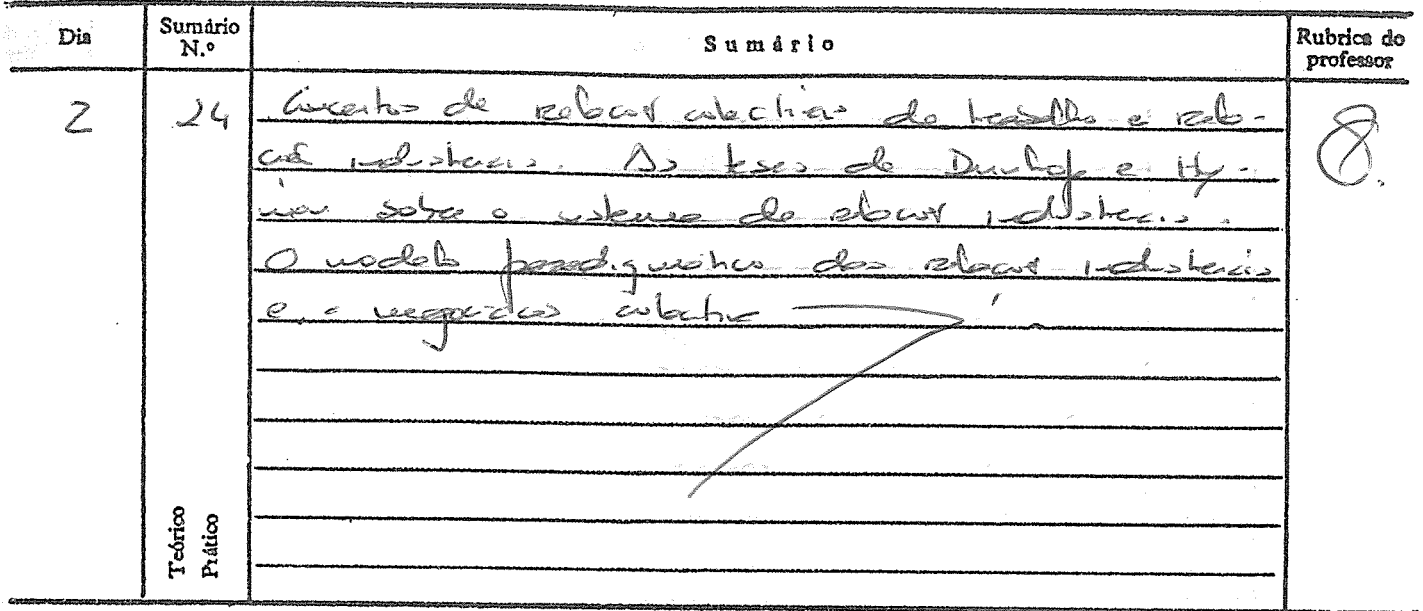 Dia
Sumário
N.º
Sumário
Rubrica do
professor
2
24
Conceitos de relações colectivas de trabalho e rela-
ções industriais. As teses de Dunlop e Hy-
man sobre o sistema de relações industriais.
O modelo paradigmático das relações industriais
e a negociação colectiva
Teórico
Prático